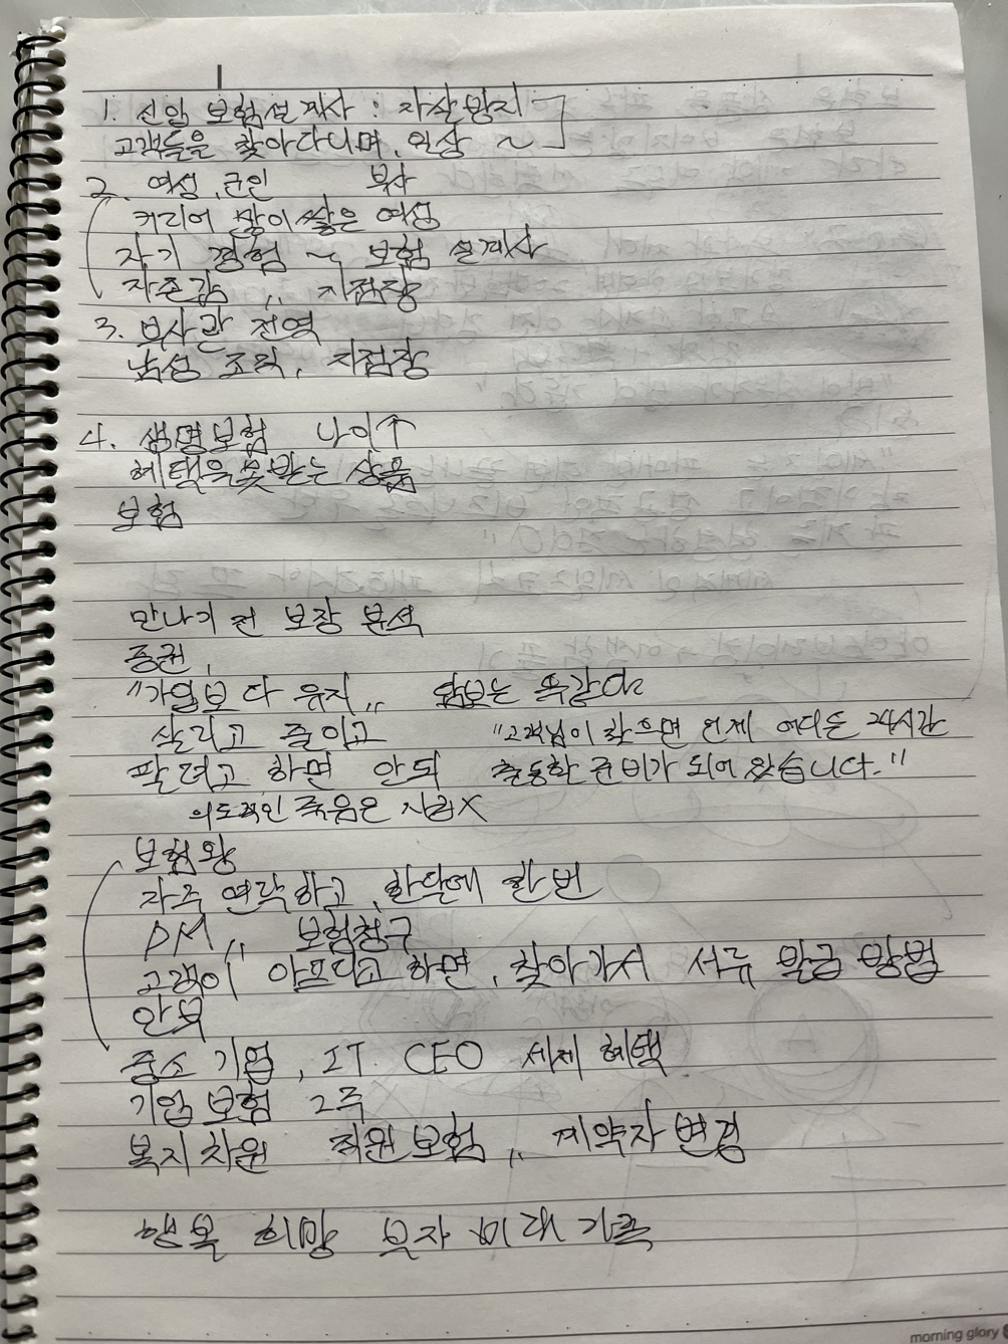 1. 신입 보험설계사 : 자살방지
고객들을 찾아다니며, 인상 ~
2. 여성, 군인 부사
커리어 많이 쌓은 여성
자기 경험 ~ 보험 설계사
자존감 ,, 지점장
3. 부사관 전역
남성 조직, 지점장
4. 생명보험 나이↑
혜택을 못 받는 상품
보험
만나기 전 보장 분석
증권,
"가입보다 유지,, 담보는 똑같아
살리고 줄이고 "고객님이 찾으면 언제 어디든 24시간
팔려고 하면 안돼 출동할 준비가 되어 있습니다."
의도적인 죽음은 지급X
보험왕
자주 연락하고, 한달에 한번
DM,, 보험청구
고객이 아프다고 하면, 찾아가서 서류 발급 방법
안부
중소기업, IT CEO 세제 혜택
기업보험 2주
복지차원 직원보험,, 계약자 변경
행복 희망 부자 미래 가족
morning glory